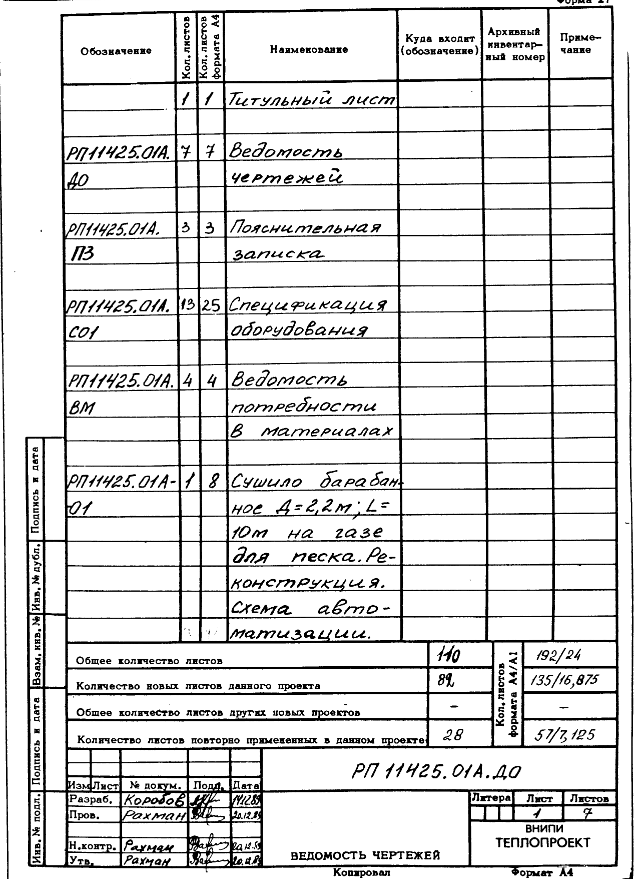 Форма 27
Обозначение Кол. листов Кол. листов формата А4 Наименование Куда входит (обозначение) Архивный инвентарный номер Примечание
1 1 Титульный лист
РП11425.01А. 7 7 Ведомость
ДО чертежей
РП11425.01А. 3 3 Пояснительная
ПЗ записка
РП11425.01А. 13 25 Спецификация
СО1 оборудования
РП11425.01А. 4 4 Ведомость
ВМ потребности
в материалах
РП11425.01А- 1 8 Сушило барабан-
01 ное Д=2,2м; L=
10м на газе
для песка. Ре-
конструкция.
Схема авто-
матизации.
Общее количество листов 110 192/24
Количество новых листов данного проекта 82 135/16,875
Общее количество листов других новых проектов – –
Количество листов повторно примененных в данном проекте 28 57/7,125
Кол. листов формата А4/А1
РП 11425.01А.ДО
Изм Лист № докум. Подп. Дата
Разраб. Коробов 14.12.89
Пров. Рахман 20.12.89
Н.контр. Рахман 20.12.89
Утв. Рахман 20.12.89
ВЕДОМОСТЬ ЧЕРТЕЖЕЙ
Литера Лист Листов
1 7
ВНИПИ
ТЕПЛОПРОЕКТ
Копировал Формат А4
Подпись и дата
Инв. № дубл.
Взам. инв. №
Подпись и дата
Инв. № подл.